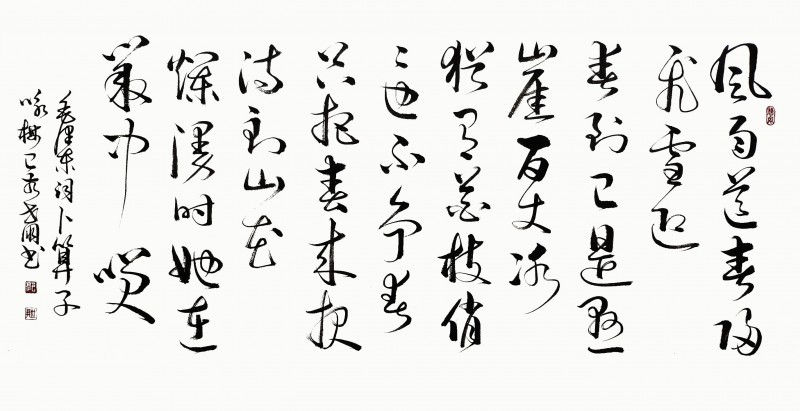 风雨送春归
飞雪迎
春到已是悬
崖百丈冰
犹有花枝俏
々也不争春
只把春来报
待到山花
爛漫时她在
叢中笑
毛泽东词卜算子
咏梅己亥 书